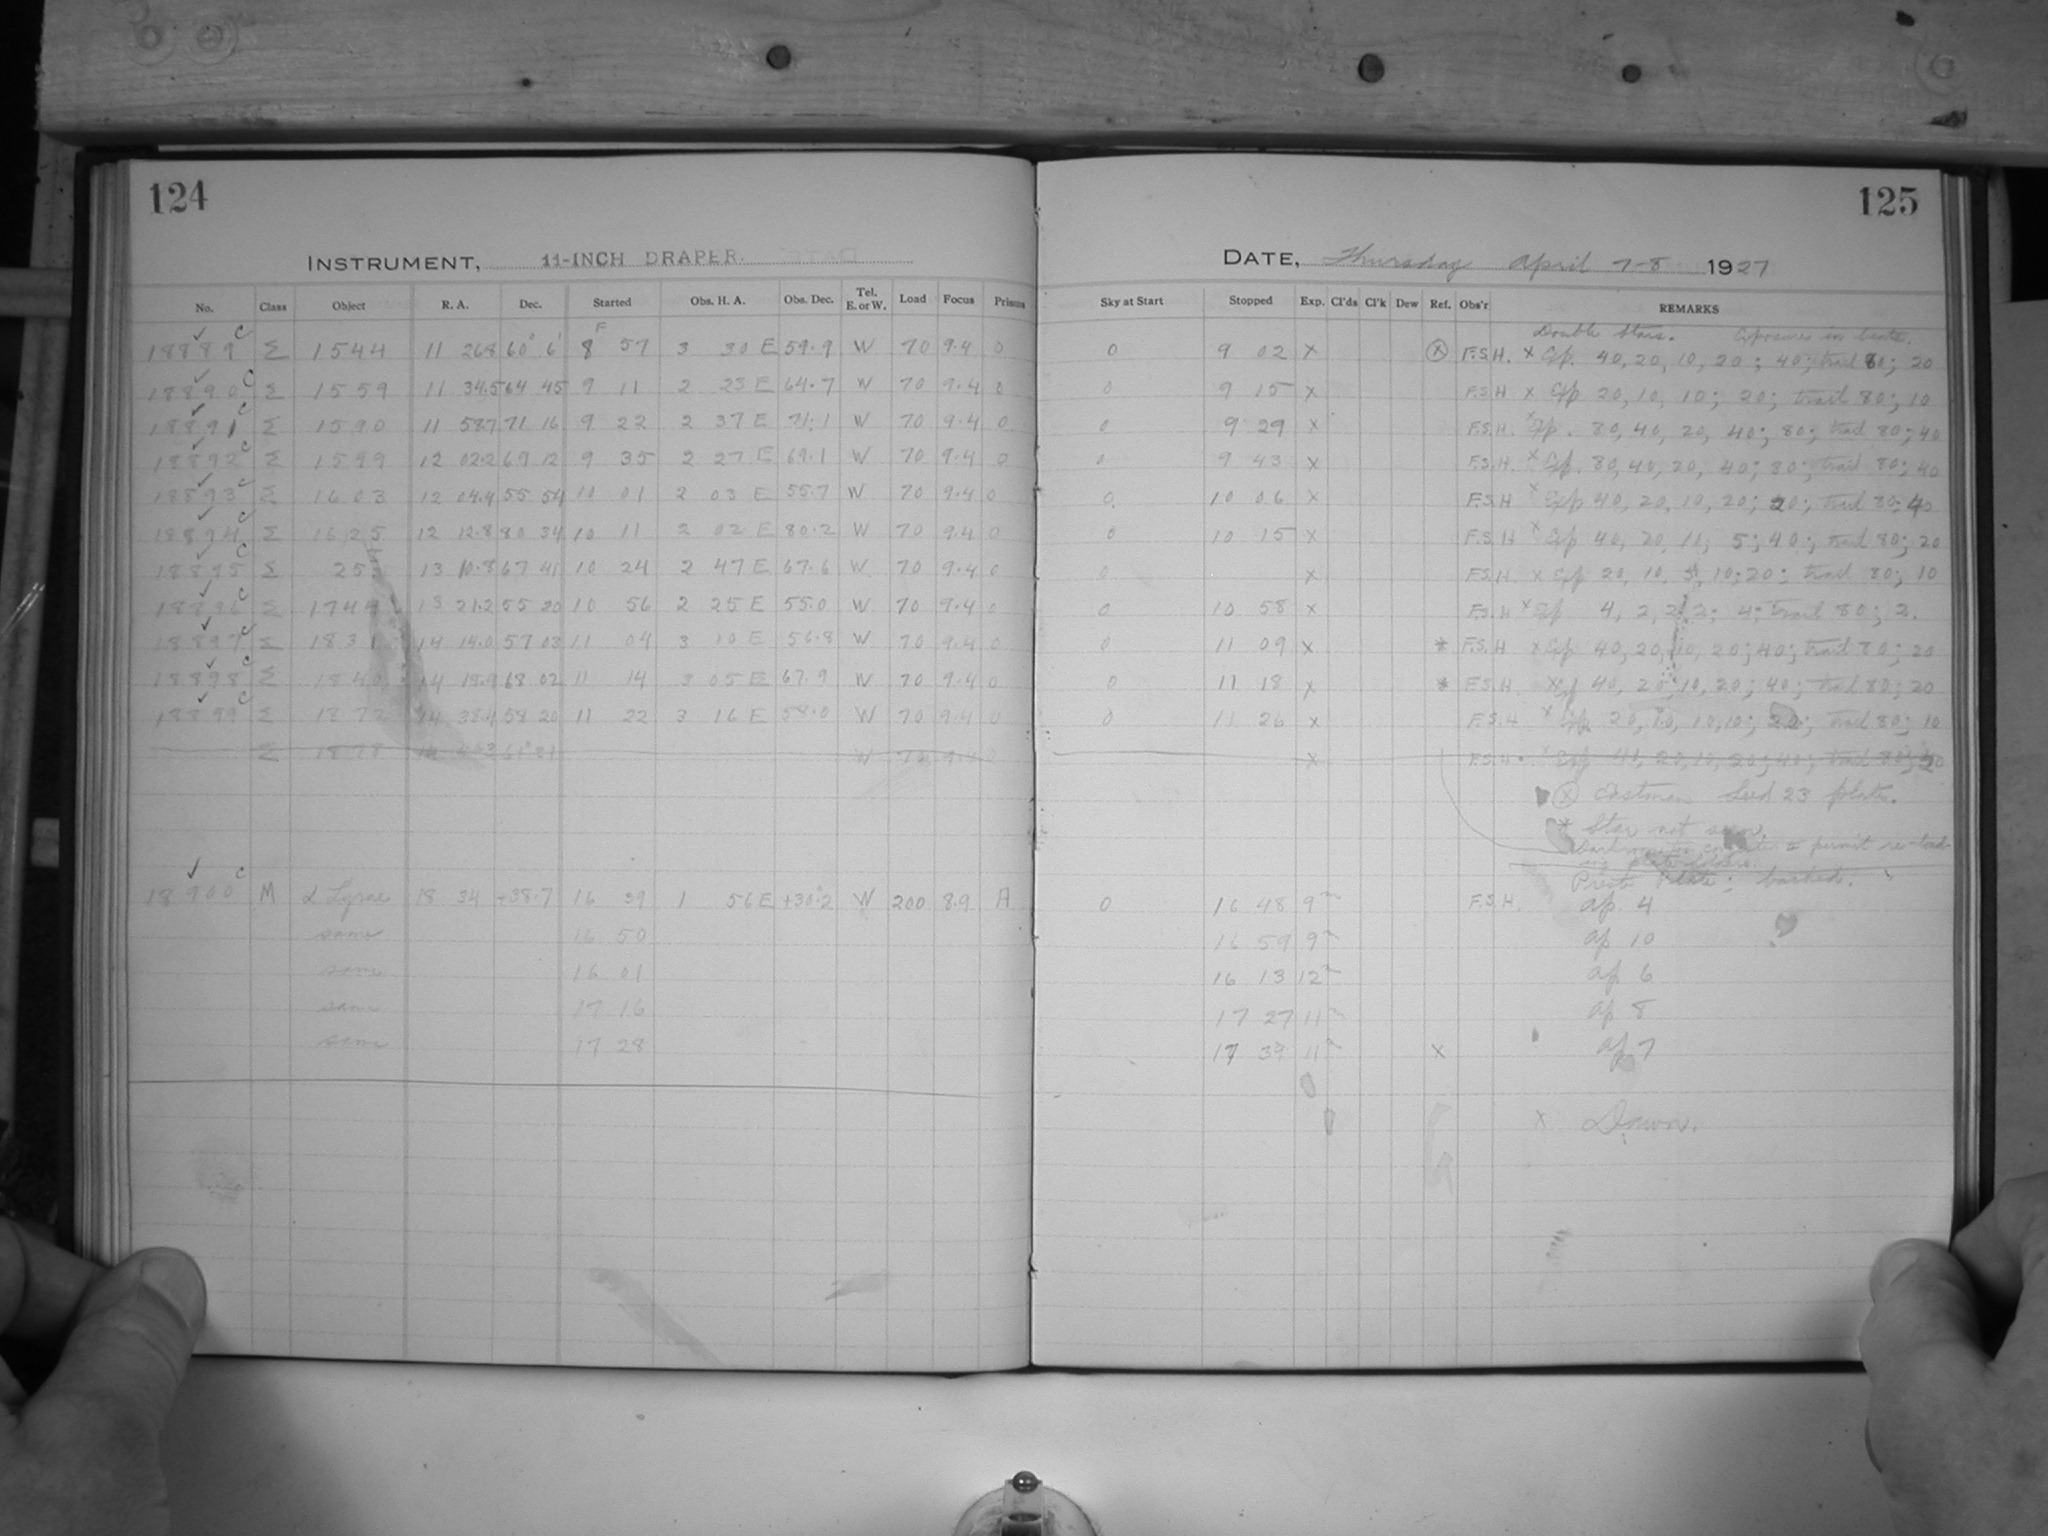 124
INSTRUMENT, 11-INCH DRAPER.
No. Class Object R. A. Dec. Started Obs. H. A. Obs. Dec. Tel. E. or W. Load Focus Prisms
18889 C Σ 1544 11 26.8 60° 6' 8 57 3 30 E 59.9 W 70 9.4 0
18890 C Σ 1559 11 34.5 64 45 9 11 2 23 E 64.7 W 70 9.4 0
18891 C Σ 1590 11 58.7 71 16 9 22 2 37 E 71.1 W 70 9.4 0
18892 C Σ 1599 12 02.2 69 12 9 35 2 27 E 69.1 W 70 9.4 0
18893 C Σ 1603 12 04.4 55 54 10 01 2 03 E 55.7 W 70 9.4 0
18894 C Σ 1625 12 12.8 80 34 10 11 2 02 E 80.2 W 70 9.4 0
18895 C Σ 13 10.8 67 41 10 24 2 47 E 67.6 W 70 9.4 0
18896 C Σ 1744 13 21.2 55 20 10 56 2 25 E 55.0 W 70 9.4 0
18897 C Σ 1831 14 14.0 57 03 11 04 3 10 E 56.8 W 70 9.4 0
18898 C Σ 1840 14 18.9 68 02 11 14 3 05 E 67.9 W 70 9.4 0
18899 C Σ 1872 14 38.4 58 20 11 22 3 16 E 58.0 W 70 9.4 0
Σ 1878 14 61° 21 W 9.4 0
18900 C M α Lyrae 18 34 +38.7 16 39 1 56 E +30.2 W 200 8.9 A
same 16 50
same 16 01
same 17 16
same 17 28
125
DATE, Thursday April 7-8 1927
Sky at Start Stopped Exp. Cl'ds Cl'k Dew Ref. Obs'r REMARKS
Double Stars. Exposures in beats.
0 9 02 x ⊗ F.S.H. x Exp. 40, 20, 10, 20; 40; trail 80; 20
0 9 15 x F.S.H x Exp 20, 10, 10; 20; trail 80; 10
0 9 29 x F.S.H. x Exp. 80, 40, 20, 40; 80; trail 80; 40
0 9 43 x F.S.H. x Exp. 80, 40, 20, 40; 80; trail 80; 40
0 10 06 x F.S.H x Exp 40, 20, 10, 20; 20; trail 80; 40
0 10 15 x F.S.H x Exp 40, 20, 10, 5; 40; trail 80; 20
0 x F.S.H. x Exp 20, 10, 5, 10; 20; trail 80; 10
0 10 58 x F.S.H x Exp 4, 2, 2, 2; 4; trail 80; 2.
0 11 09 x * F.S.H x Exp 40, 20, 10, 20; 40; trail 80; 20
0 11 18 x * F.S.H. x Exp 40, 20, 10, 20; 40; trail 80; 20
0 11 26 x F.S.H x Exp. 20, 10, 10, 10; 20; trail 80; 10
x F.S.H. x Exp 40, 20, 10, 20; 40; trail 80; 20
⊗ Eastman Seed 23 plates.
* Star not seen.
to permit re-load-
ing plate holders.
Plate; backed.
0 16 48 9m F.S.H. ap. 4
16 59 9m ap 10
16 13 12m ap 6
17 27 11m ap 8
17 39 11m x ap 7
x Dawn.